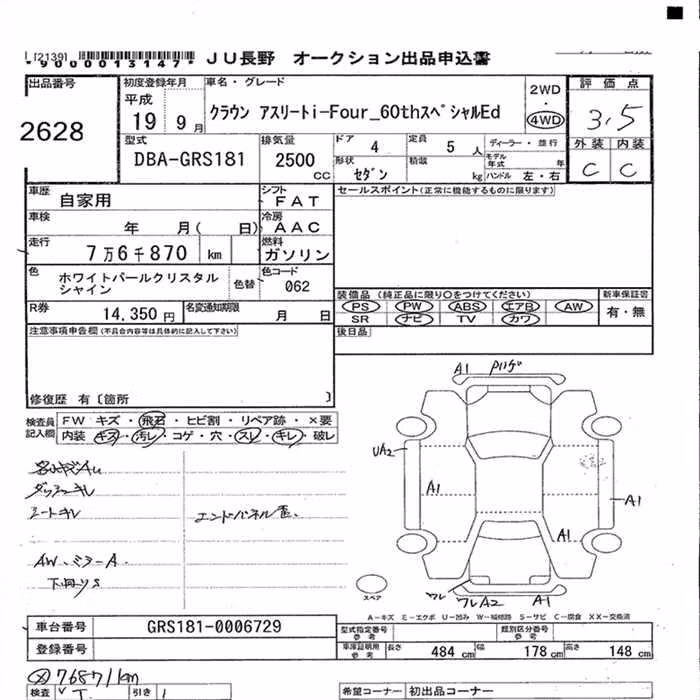 [2139] *9000013147* JU長野 オークション出品申込書
出品番号 初度登録年月 車名・グレード 評価点
2628 平成 19 9月 クラウン アスリートi-Four_60thスペシャルEd 2WD 4WD 3.5
型式 排気量 ドア 4 定員 5 人 ディーラー・並行 外装 内装
DBA-GRS181 2500 CC 形状 セダン 積載 kg モデル年式 年 ハンドル 左・右 C C
車歴 自家用 シフト FAT セールスポイント(正常に機能するものに限ります)
車検 年 月( 日) 冷房 AAC
走行 7万6千870 km 燃料 ガソリン
色 ホワイトパールクリスタルシャイン 色替 色コード 062
装備品 (純正品に限り○をつけてください) 新車保証書
R券 14,350円 名変通知期限 月 日 PS PW ABS エアB AW 有・無
SR ナビ TV カワ
注意事項申告欄(不具合内容等は具体的に記入して下さい) 後日品
修復歴 有〔箇所 〕
検査員記入欄 FW キズ・飛石・ヒビ割・リペア跡・×要
内装 キズ・汚レ・コゲ・穴・スレ・キレ・破レ
A1 UA2 A1 A1 A1
シートキレ エンドパネル歪、
AW、ミラーA
下回りS
スペア ワレ ワレA2 A1
A-キズ E-エクボ U-凹み W-補修跡 S-サビ C-腐食 XX-交換済
車台番号 GRS181-0006729 型式指定番号 参考 類別区分番号 参考
登録番号 車庫証明用 参考 長さ 484 cm 幅 178 cm 高さ 148 cm
76871km
検査 引き 希望コーナー 初出品コーナー